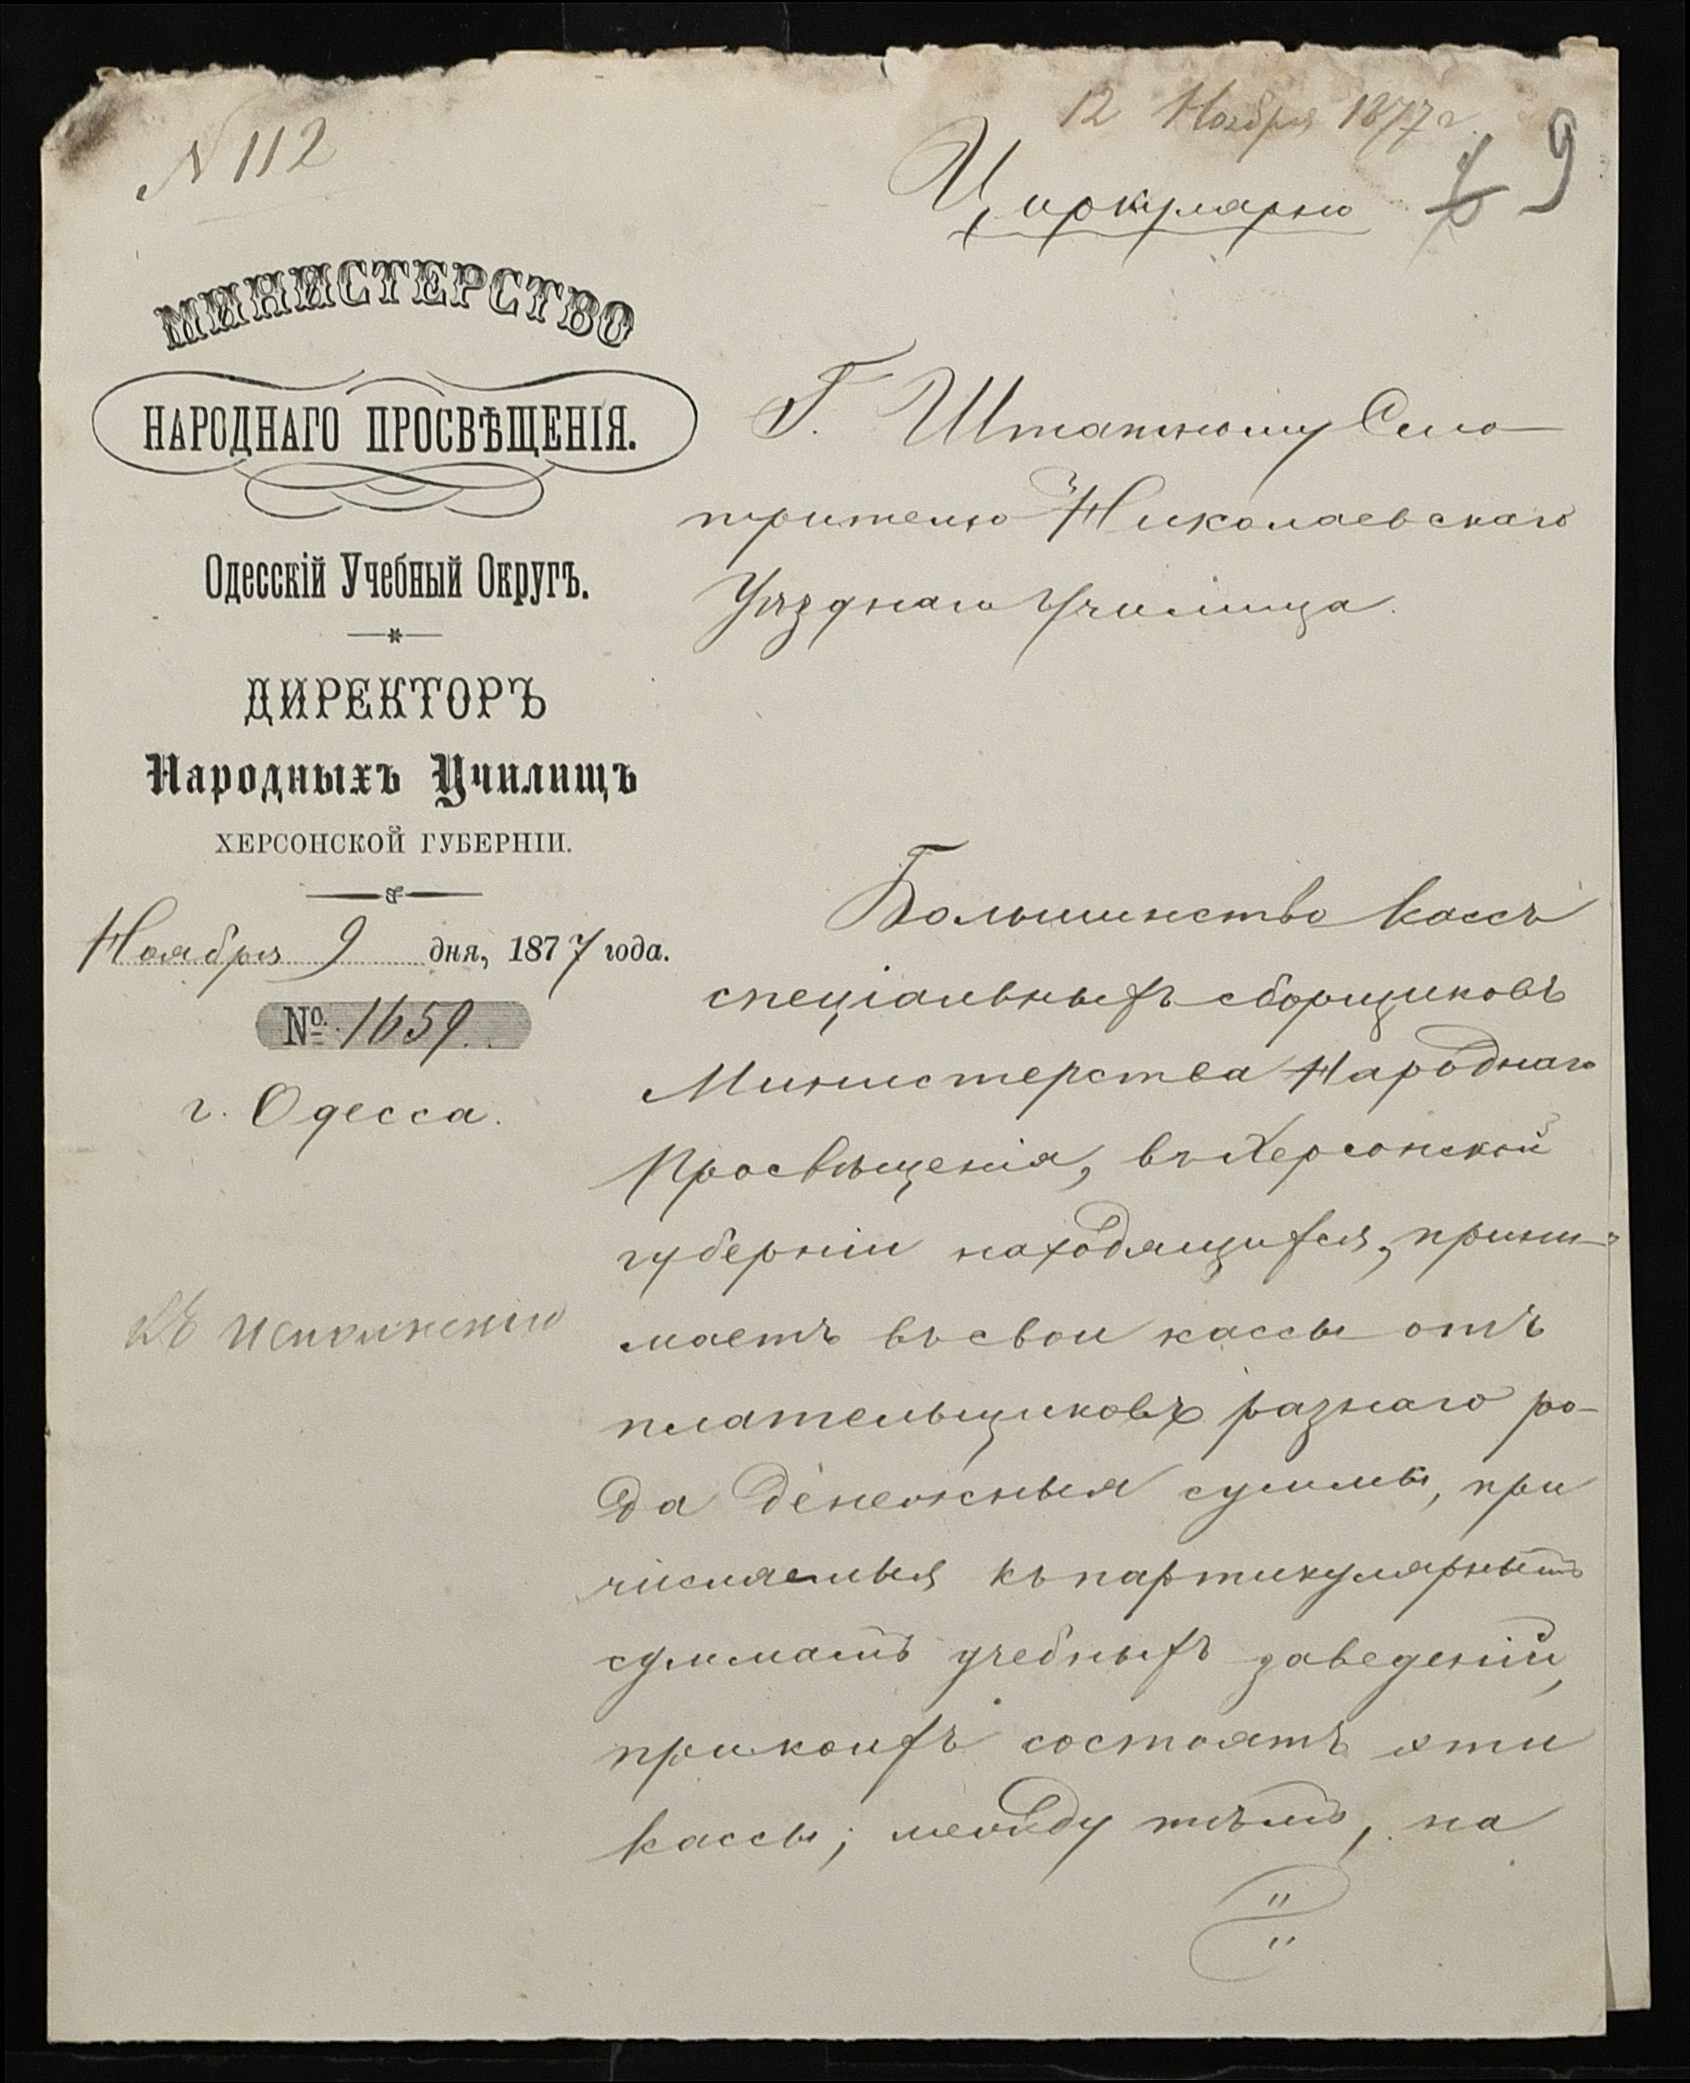 N 112
12 Ноября 1877 г.
Циркулярно
9
МИНИСТЕРСТВО
НАРОДНАГО ПРОСВѢЩЕНІЯ.
Одесскій Учебный Округъ.
ДИРЕКТОРЪ
Народныхъ Училищъ
ХЕРСОНСКОЙ ГУБЕРНІИ.
Ноября 9 дня, 1877 года.
№ 1659.
г. Одесса.
Къ исполненію
Г. Штатному Смо-
трителю Николаевскаго
Уѣзднаго Училища.
Большинство кассъ
спеціальныхъ сборщиковъ
Министерства Народнаго
Просвѣщенія, въ Херсонской
губерніи находящихся, прини-
маетъ въ свои кассы отъ
плательщиковъ разнаго ро-
да денежныя суммы, при
числяемыя къ партикулярнымъ
суммамъ учебныхъ заведеній,
при коихъ состоятъ эти
кассы; между тѣмъ, на